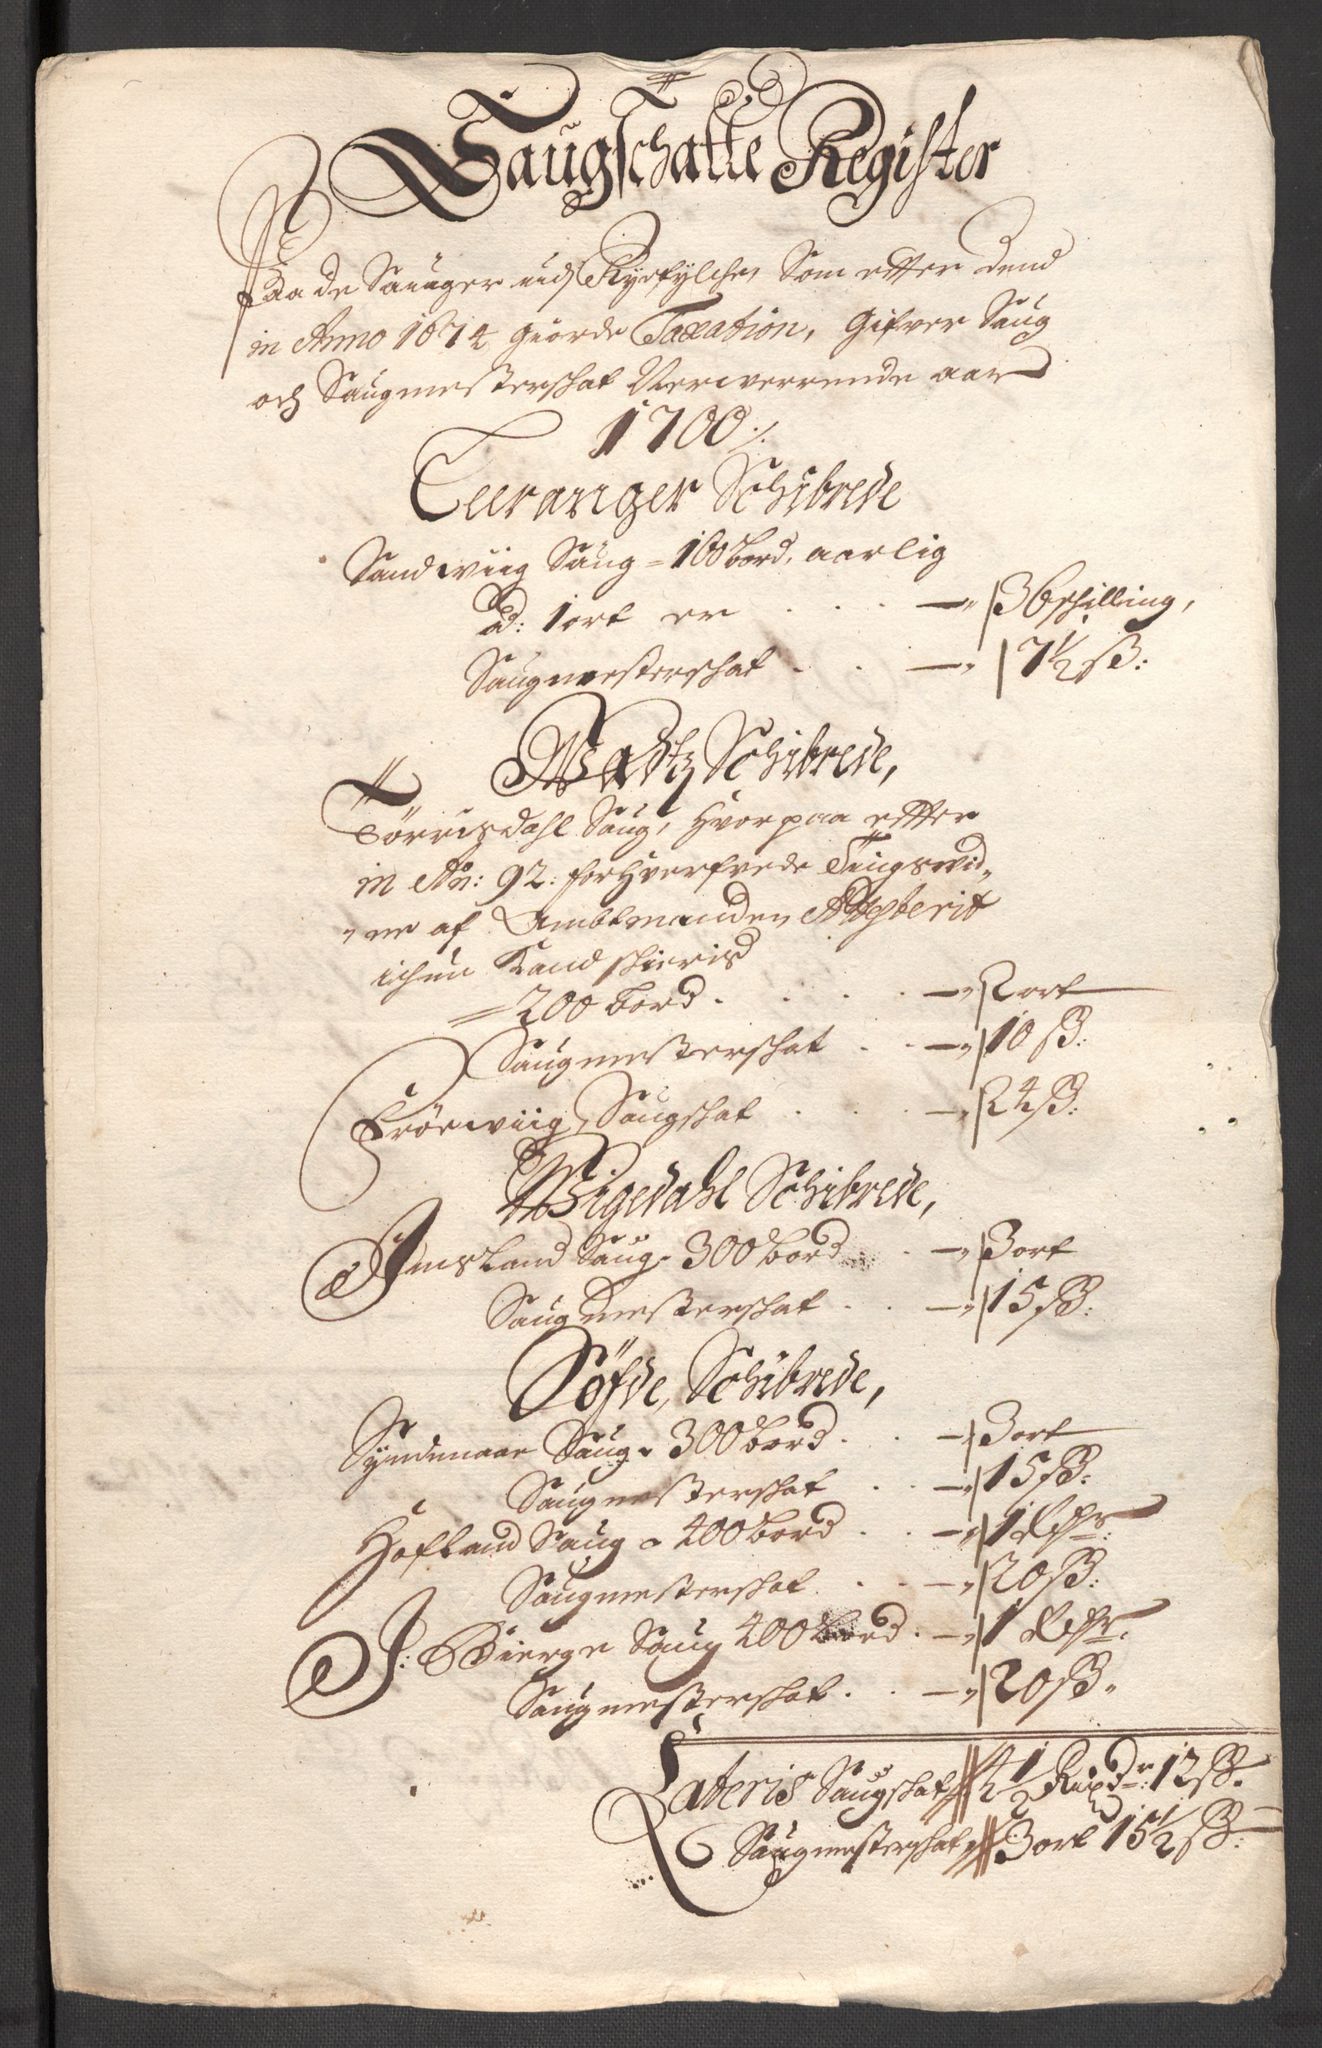 Saugschatte Register
Paa de Sauger udj Ryefylche, Som efter dend
in Anno 1674 giorde Taxation, Gifver Saug
och Saugmesterschat Nerverrende aar
1700 ./.
Leeranger Schibrede
Sandwiig Saug = 100 bord, aarlig
ad: 1 ort er . . . —„ 3 6 schilling,
Saugmesterschat . . —„ 7½ ß:
Wadtz Schibrede,
Tørrisdahl Saug, hvorpaa efter
in An: 92: forhverfvede Tingsvid„
„ne af Ambtmanden
= 200 bord . . . . —„ 2 ort
Saugmesterschat . . —„ 10 ß:
Frøewiig Saugschat . . . —„ 24 ß:
Wigedahl Schibrede,
Imsland Saug = 300 bord . —„ 3 ort
Saugmesterschat . . —„ 15 ß:
Søfde, Schibrede,
Syndenaae Saug = 300 bord . . —„ 3 ort
Saugmesterschat . . —„ 15 ß:
Hofland Saug = 400 bord . . —„ 1 Rdr:
Saugmesterschat . . —„ 20 ß:
J: Bierge Saug 400 bord . —„ 1 Rdr:
Saugmesterschat . . —„ 20 ß„
Lateris Saugschat 4½ Rixdr: 12 ß.
Saugmesterschat 3 ort 15½ ß: